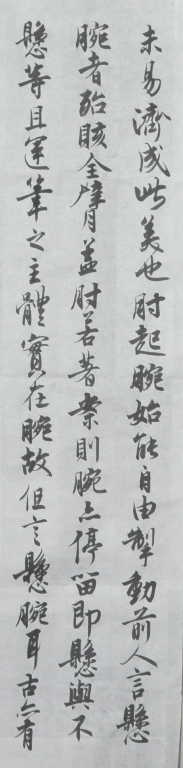 未易濟成此美也肘起腕始能自由掣動前人言懸
腕者殆賅全臂月蓋肘若著案則腕亦停留即懸與不
懸等且運筆之主體實在腕故但言懸腕耳古亦有